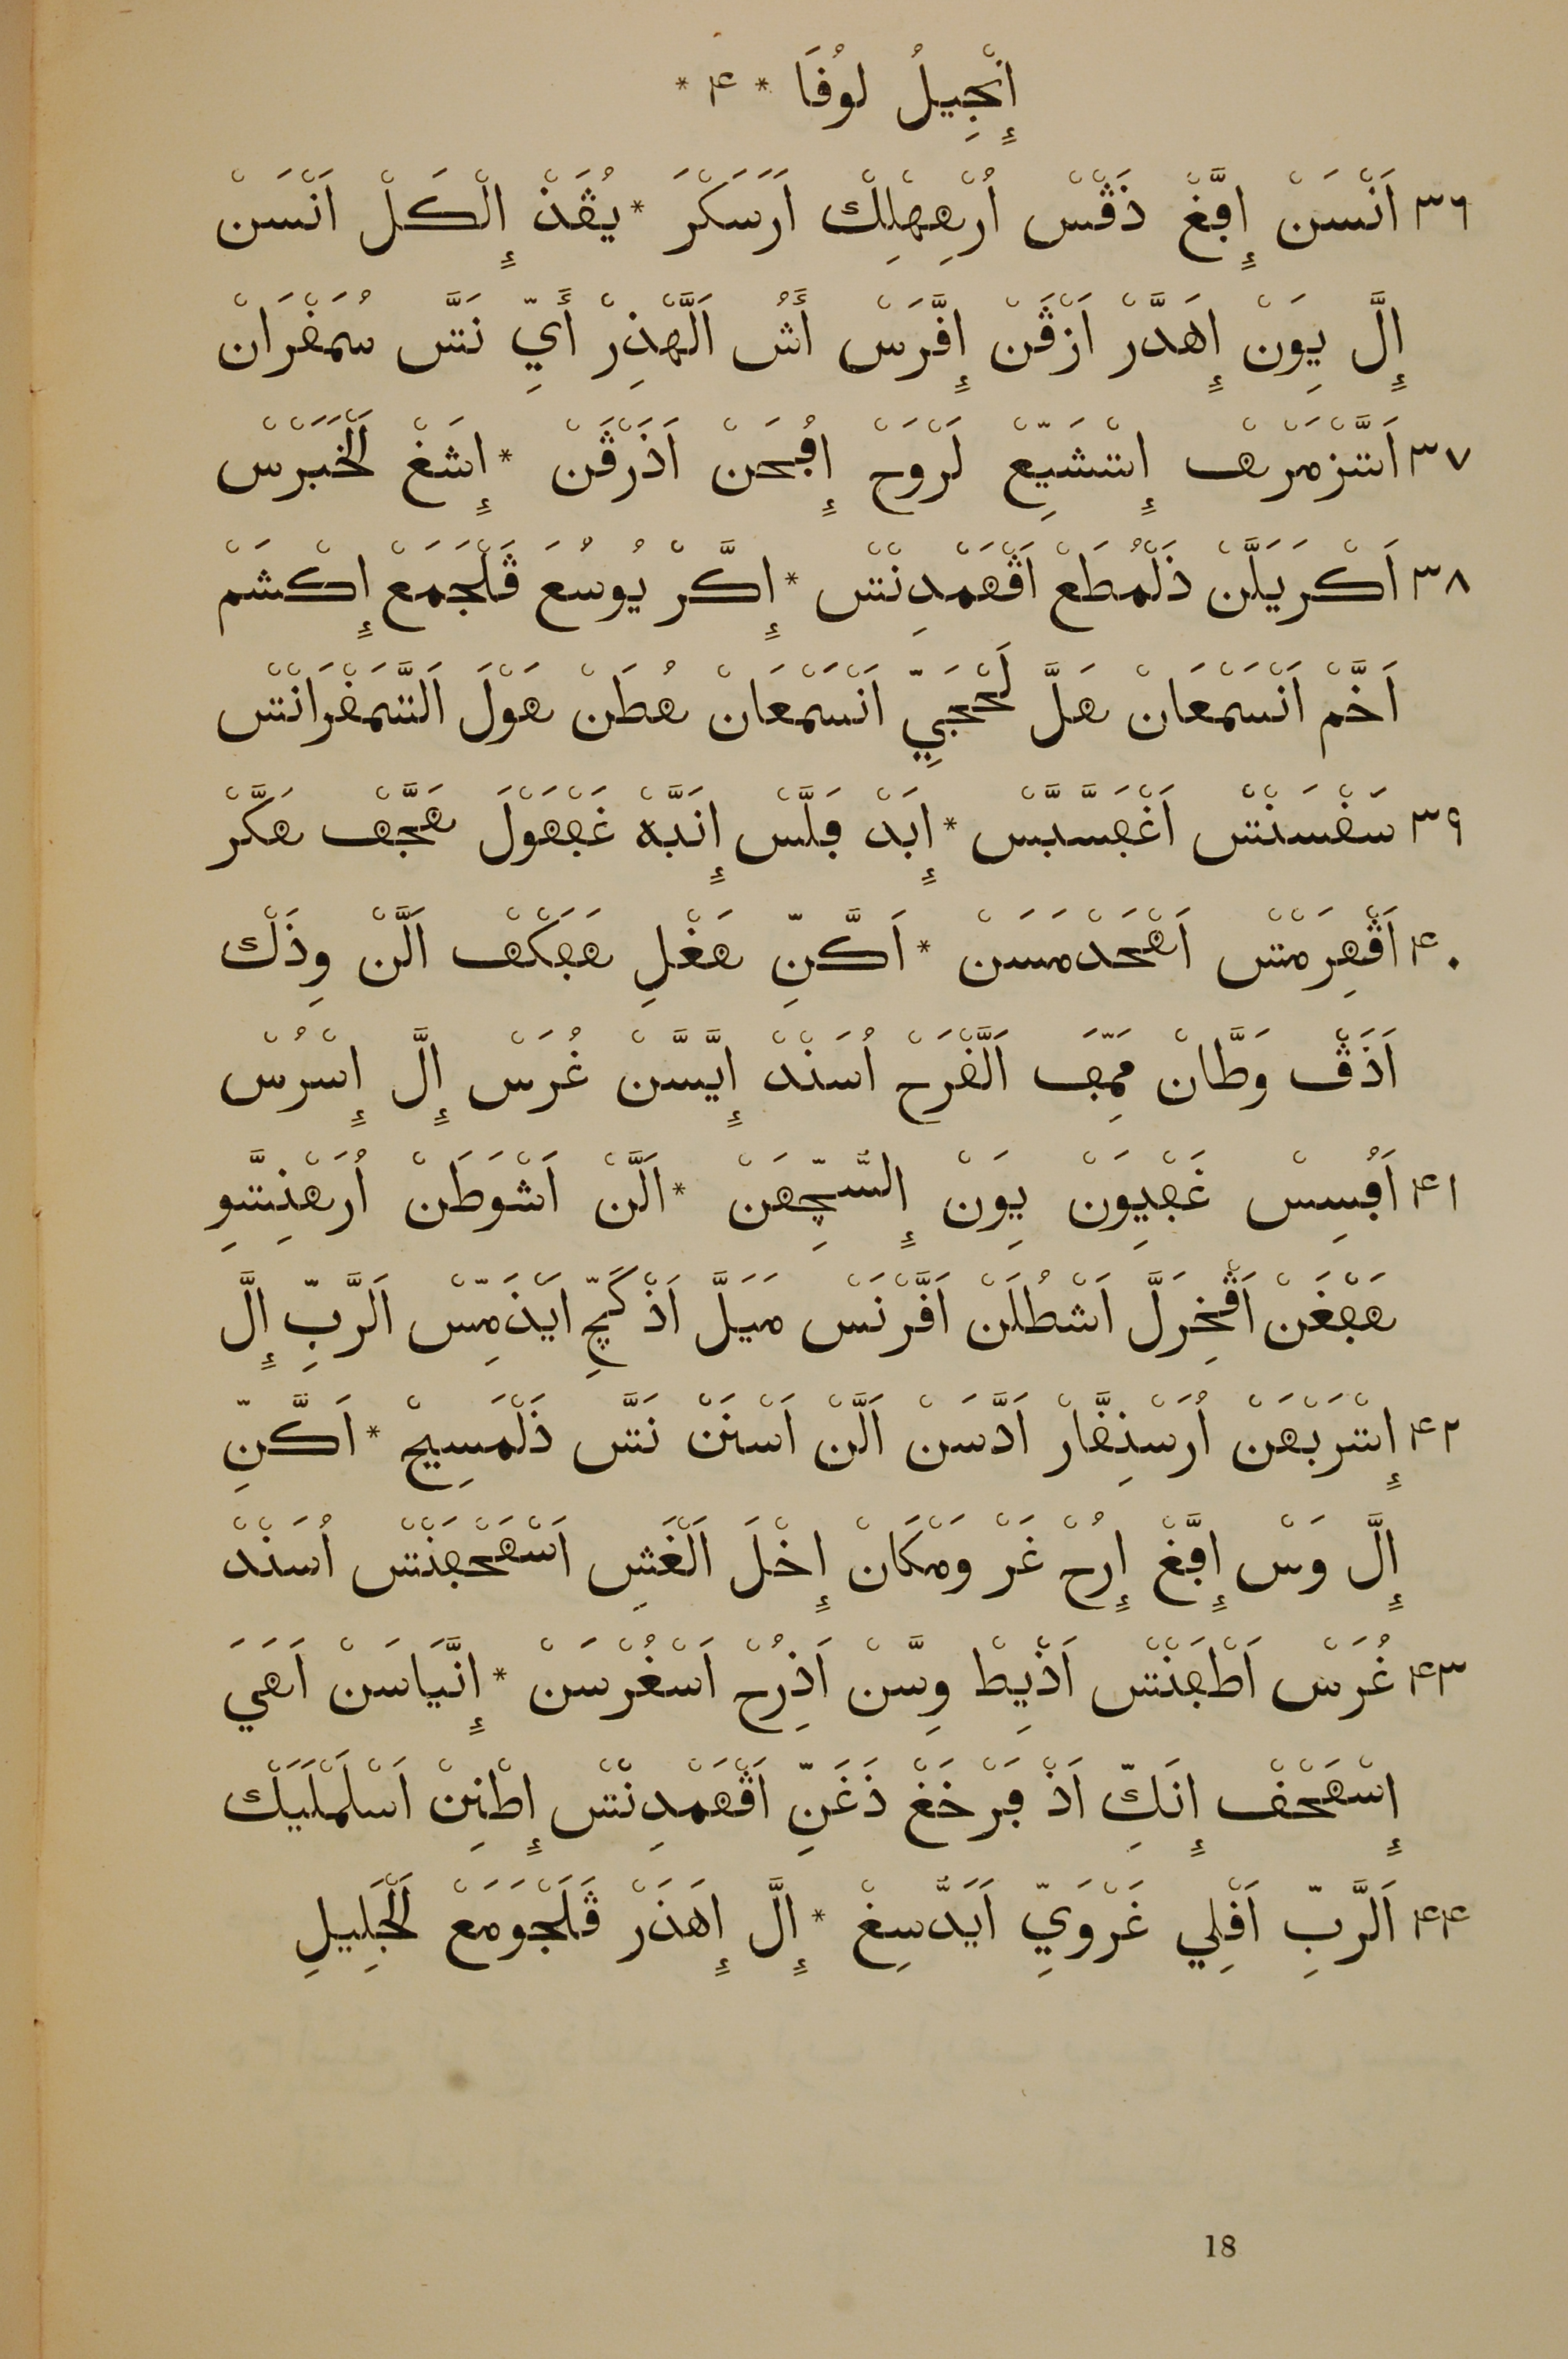 إِنْجِيلُ لوُفَا * ۴ *
٣٦ اَنْسَنْ إِفَّغْ ذَڤْسْ اُرْهِهْلِكْ اَرَسَكْرَ * يُڤَذْ إِلْكَلْ اَنْسَنْ
إِلَّ يِوَنْ إِهَدَّرْ اَزْڤَنْ إِفَّرَسْ أَشُ اَلَّهْذِرْ أَيِّ نَتَّ سُمَفْرَانْ
٣٧ اَتَّزْمَرْفْ إِتْشَيِّعْ لَرْوَحْ إِفُجَنْ اَذَرْڤَنْ * إِشَغْ لَخْبَرَسْ
٣٨ اَكْرَيَلَّنْ ذَلْمُطَعْ اَڤْهَمْدِنْتْ * إِكَّرْ يُوسُعَ ڤَلْجَمَعْ إِكْشَمْ
اَخَّمْ اَنْسَمْعَانْ هَلَّ لَحْجَبِيِّ اَنْسَمْعَانْ هُطَنْ هَوْلَ اَلتَّمَفْرَانْتْ
٣٩ سَفْسَنْتْ اَغْفَسَّبَّسْ * إِبَدْ فَلَّسْ إِنَدَّهْ غَفْهَوْلَ هَجَّفْ هَكَّرْ
۴٠ اَڤْهِرَمْتْ اَهْحَدْمَسَنْ * اَكَّنِّ هَغْلِ هَفَكْفْ اَلَّنْ وِذَكْ
اَذَڤْ وَطَّانْ مَمِّفَ اَلَّفْرَحْ اُسَنْدْ إِيَّسَّنْ غُرَسْ إِلَّ إِسْرُسْ
۴١ اَفُسِسْ غَفْيِوَنْ يِوَنْ إِلسَّجِّهَنْ * اَلَّنْ اَشْوَطَنْ اُرَهْنِتَّوِ
هَفْغَنْ اَڤْخِرَلَّ اَشْطُلَنْ اَفَّرْنَسْ مَيَلَّ اَذْ كَچِّ اَيْذَمِّسْ اَلرَّبِّ إِلَّ
۴٢ إِتْرَبْهَنْ اُرَسْنِفَّارْ اَدَّسَنْ اَلَّنْ اَسْنَنْ نَتَّ ذَلْمَسِيحْ * اَكَّنِّ
إِلَّ وَسْ إِفَّغْ إِرُحْ غَرْ وَمْكَانْ إِخْلَ اَلْغَشِ اَسْهَحْفَنْتْ اُسَنْدْ
۴٣ غُرَسْ اَطْفَنْتْ اَذْيِطْ وِسَّنْ اَذِرُحْ اَسْغُرْسَنْ * إِنَّيَاسَنْ اَهَيَ
إِسْهَحْفْ إِنَكِّ اَذْ فَرْخَغْ ذَغَنِّ اَڤْهَمْدِنْتْ إِطْنِنْ اَسْلَمْلَيَكْ
۴۴ اَلرَّبِّ اَفْلِي غَرْوَيِّ اَيَدَّسِغْ * إِلَّ إِهَذَرْ ڤَلَجْوَمَعْ لَجْلِيلِ
18